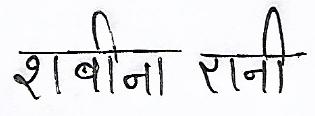 शबीना रानी